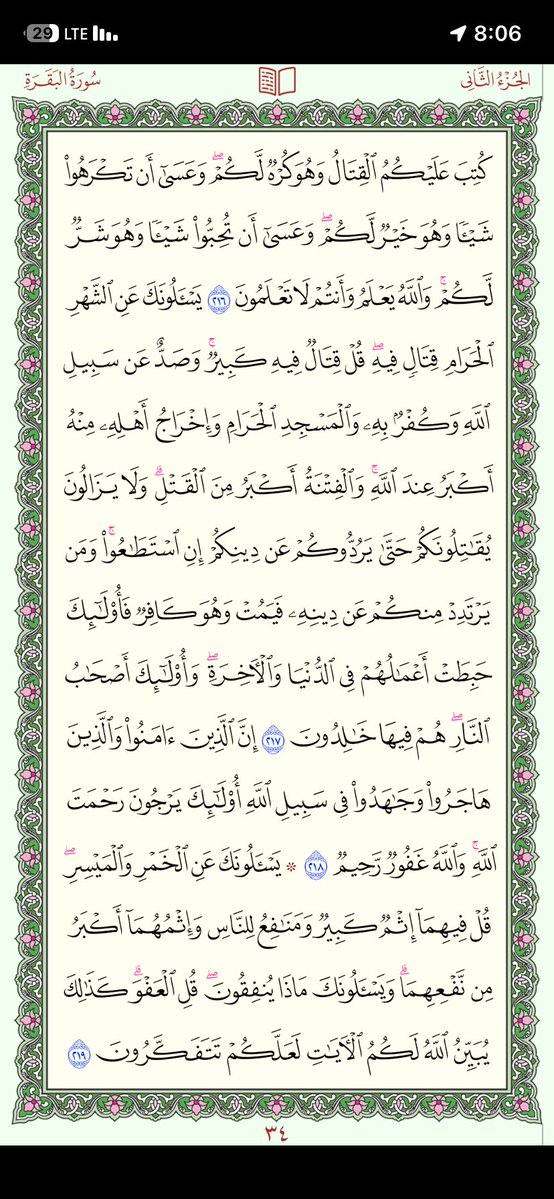 29 LTE 8:06
الجُزْءُ الثَّانِي سُورَةُ البَقَرَةِ
كُتِبَ عَلَيْكُمُ ٱلْقِتَالُ وَهُوَ كُرْهٌ لَّكُمْۖ وَعَسَىٰٓ أَن تَكْرَهُوا۟
شَيْـًٔا وَهُوَ خَيْرٌ لَّكُمْۖ وَعَسَىٰٓ أَن تُحِبُّوا۟ شَيْـًٔا وَهُوَ شَرٌّ
لَّكُمْۚ وَٱللَّهُ يَعْلَمُ وَأَنتُمْ لَا تَعْلَمُونَ ٢١٦ يَسْـَٔلُونَكَ عَنِ ٱلشَّهْرِ
ٱلْحَرَامِ قِتَالٍ فِيهِۖ قُلْ قِتَالٌ فِيهِ كَبِيرٌۚ وَصَدٌّ عَن سَبِيلِ
ٱللَّهِ وَكُفْرٌۢ بِهِۦ وَٱلْمَسْجِدِ ٱلْحَرَامِ وَإِخْرَاجُ أَهْلِهِۦ مِنْهُ
أَكْبَرُ عِندَ ٱللَّهِۚ وَٱلْفِتْنَةُ أَكْبَرُ مِنَ ٱلْقَتْلِۗ وَلَا يَزَالُونَ
يُقَـٰتِلُونَكُمْ حَتَّىٰ يَرُدُّوكُمْ عَن دِينِكُمْ إِنِ ٱسْتَطَـٰعُوا۟ۚ وَمَن
يَرْتَدِدْ مِنكُمْ عَن دِينِهِۦ فَيَمُتْ وَهُوَ كَافِرٌ فَأُو۟لَـٰٓئِكَ
حَبِطَتْ أَعْمَـٰلُهُمْ فِى ٱلدُّنْيَا وَٱلْـَٔاخِرَةِۖ وَأُو۟لَـٰٓئِكَ أَصْحَـٰبُ
ٱلنَّارِۖ هُمْ فِيهَا خَـٰلِدُونَ ٢١٧ إِنَّ ٱلَّذِينَ ءَامَنُوا۟ وَٱلَّذِينَ
هَاجَرُوا۟ وَجَـٰهَدُوا۟ فِى سَبِيلِ ٱللَّهِ أُو۟لَـٰٓئِكَ يَرْجُونَ رَحْمَتَ
ٱللَّهِۚ وَٱللَّهُ غَفُورٌ رَّحِيمٌ ٢١٨ ۞ يَسْـَٔلُونَكَ عَنِ ٱلْخَمْرِ وَٱلْمَيْسِرِۖ
قُلْ فِيهِمَآ إِثْمٌ كَبِيرٌ وَمَنَـٰفِعُ لِلنَّاسِ وَإِثْمُهُمَآ أَكْبَرُ
مِن نَّفْعِهِمَاۗ وَيَسْـَٔلُونَكَ مَاذَا يُنفِقُونَۖ قُلِ ٱلْعَفْوَۗ كَذَٰلِكَ
يُبَيِّنُ ٱللَّهُ لَكُمُ ٱلْـَٔايَـٰتِ لَعَلَّكُمْ تَتَفَكَّرُونَ ٢١٩
٣٤